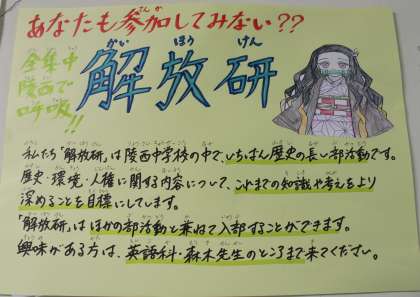 あなたも参加してみない??
全集中
陵西で
呼吸!!
解放研
私たち「解放研」は陵西中学校の中で、いちばん歴史の長い部活動です。
歴史・環境・人権に関する内容について、これまでの知識や考えをより
深めることを目標にしています。
「解放研」はほかの部活動と兼ねて入部することができます。
興味がある方は、英語科・森木先生のところまで来てください。